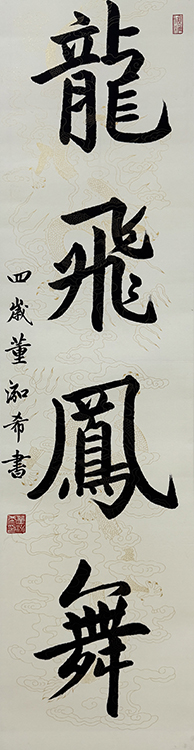 龍飛鳳舞
四歲董泇希書